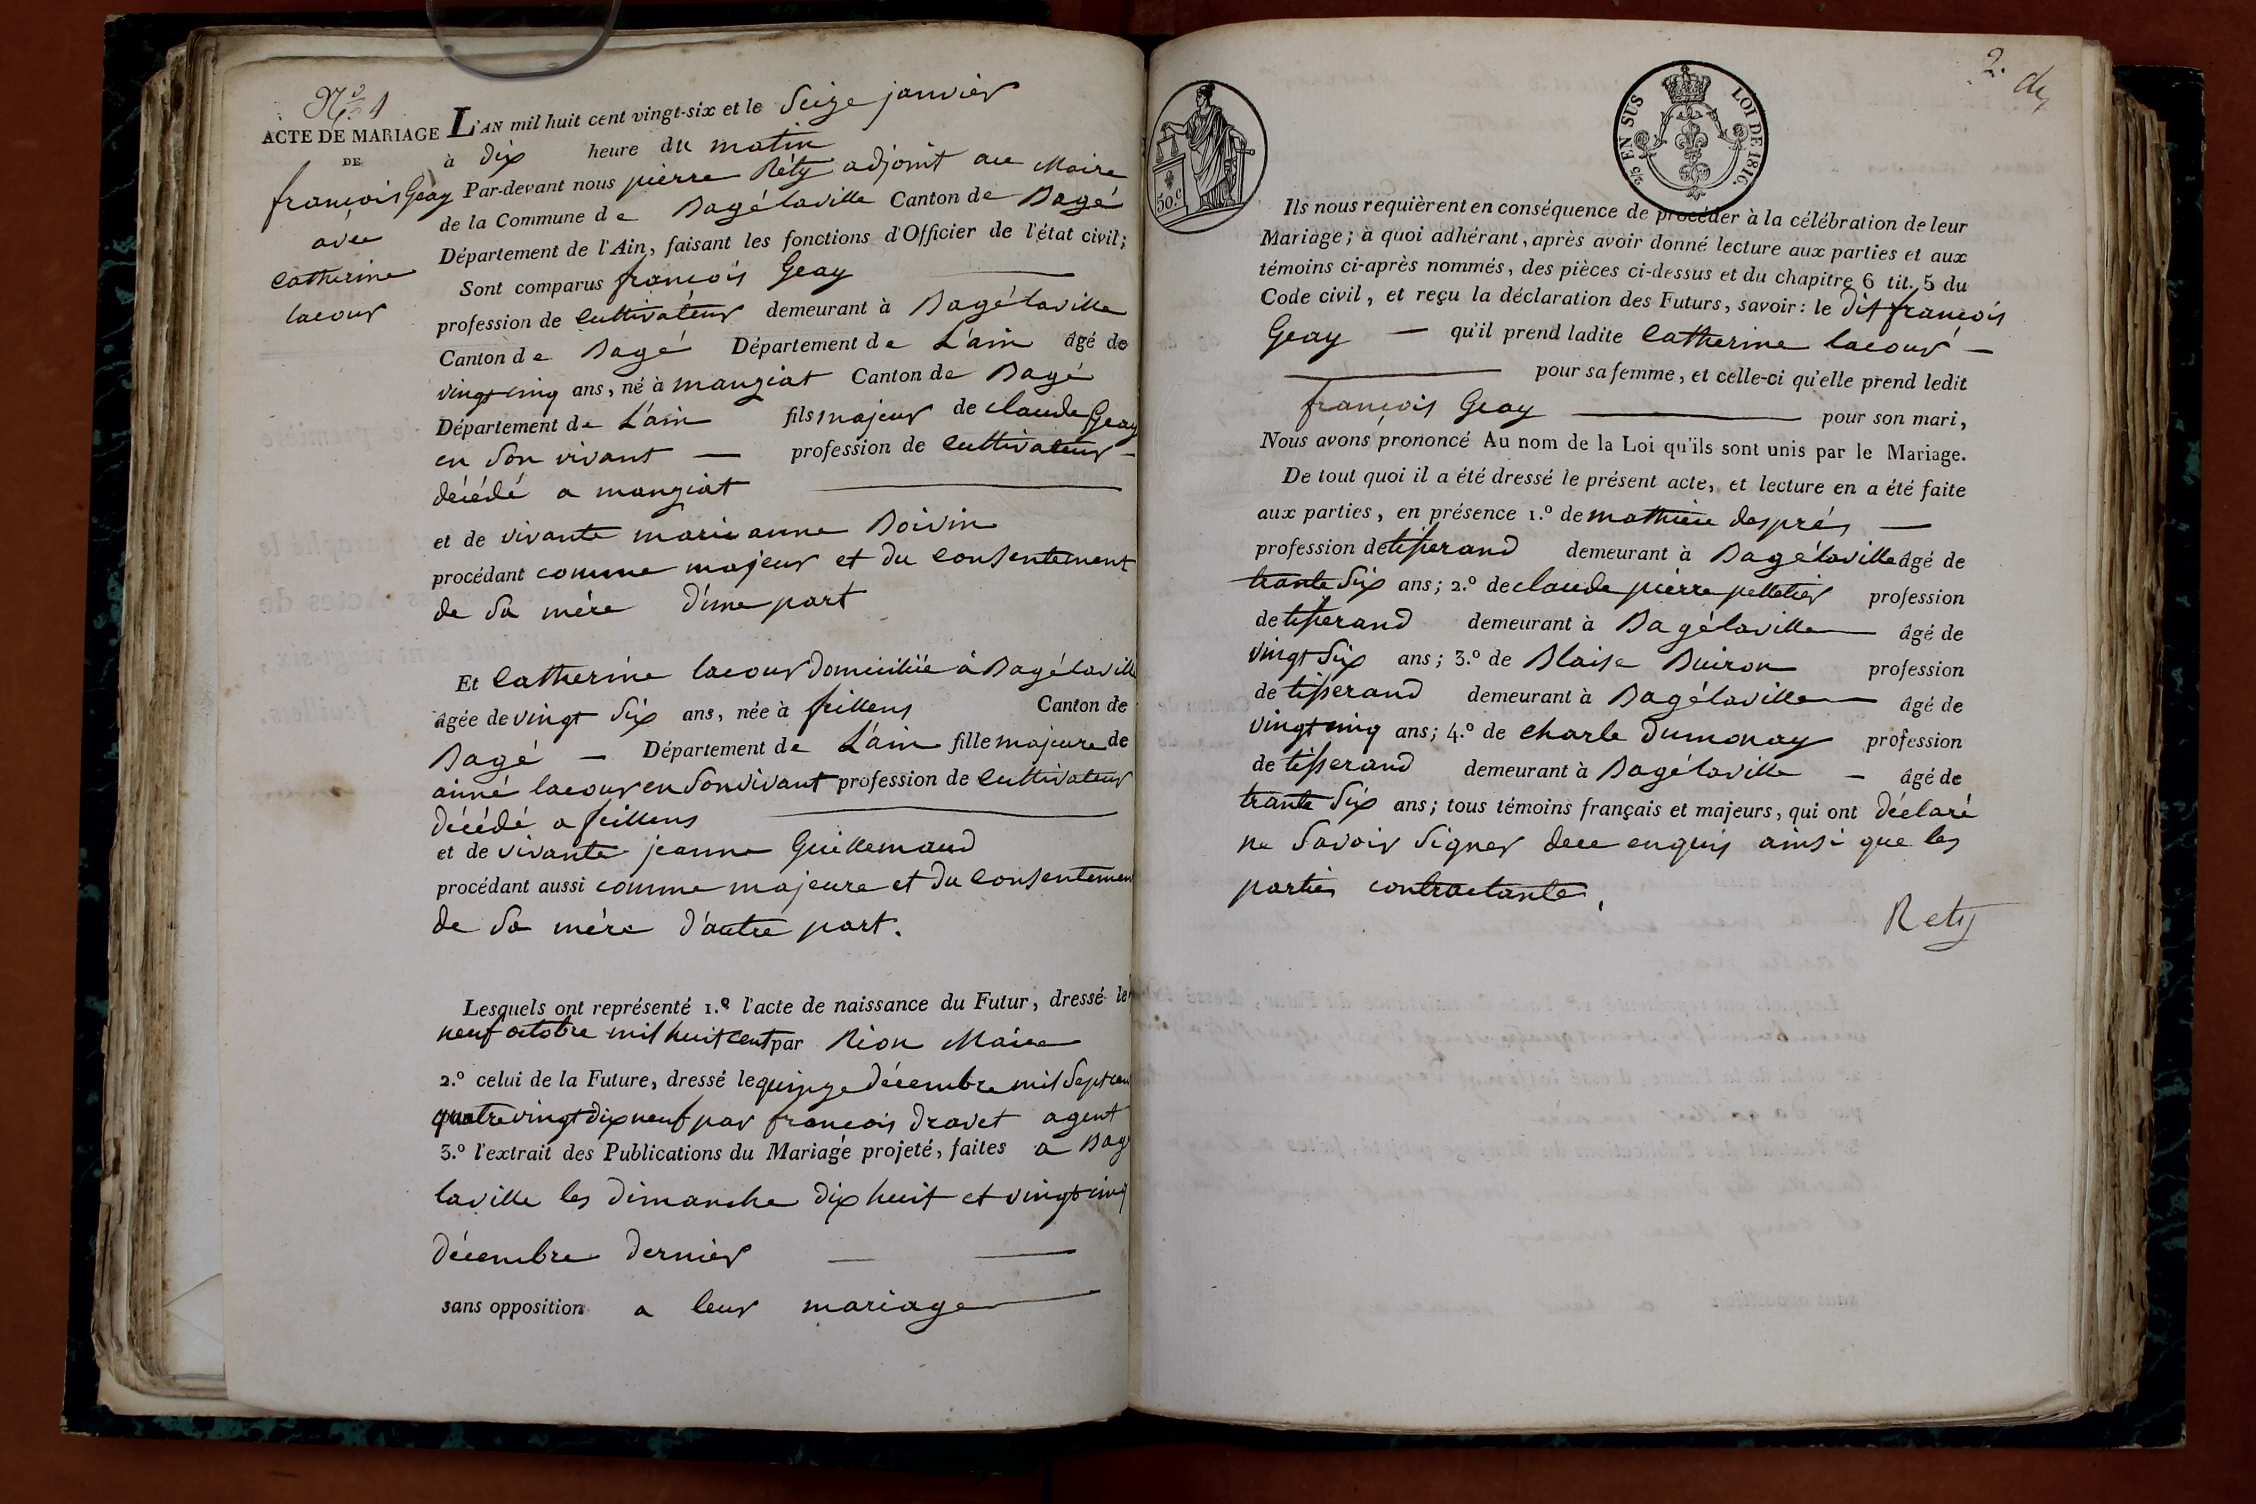 N.º 1
ACTE DE MARIAGE
DE
françois Geay
avec
Catherine
lacour
L'AN mil huit cent vingt-six et le Seize janvier
à dix heure du matin
Par-devant nous pierre Réty adjoint au Maire
de la Commune de Bagélaville Canton de Bagé
Département de l'Ain, faisant les fonctions d'Officier de l'état civil;
Sont comparus françois Geay
profession de Cultivateur demeurant à Bagélaville
Canton de Bagé Département de L'ain âgé de
vingt cinq ans, né à manziat Canton de Bagé
Département de L'ain fils majeur de claude Geay
en Son vivant — profession de Cultivateur —
décédé a manziat
et de vivante marie anne Boivin
procédant comme majeur et du Consentement
de Sa mére d'une part
Et Catherine lacour domiciliée à Bagélaville
âgée de vingt Six ans, née à feillens Canton de
Bagé — Département de L'ain fille majeure de
aimé lacour en Son vivant profession de Cultivateur
décédé a feillens
et de vivante jeanne Guillemaud
procédant aussi comme majeure et du Consentemen
de Sa mére d'autre part.
Lesquels ont représenté 1.º l'acte de naissance du Futur, dressé le
neuf octobre mil huit cent par Rion Maire
2.º celui de la Future, dressé le quinze décembre mil Sept cen
quatre vingt dix neuf par françois dravet agent
3.º l'extrait des Publications du Mariage projeté, faites a Bag
laville les dimanche dix huit et vingt cinq
décembre dernier
sans opposition a leur mariage
2.
50 c.
25 EN SUS
LOI DE 1816.
Ils nous requièrent en conséquence de procéder à la célébration de leur
Mariage; à quoi adhérant, après avoir donné lecture aux parties et aux
témoins ci-après nommés, des pièces ci-dessus et du chapitre 6 tit. 5 du
Code civil, et reçu la déclaration des Futurs, savoir: le dit françois
Geay — qu'il prend ladite Catherine lacour —
pour sa femme, et celle-ci qu'elle prend ledit
françois Geay pour son mari,
Nous avons prononcé Au nom de la Loi qu'ils sont unis par le Mariage.
De tout quoi il a été dressé le présent acte, et lecture en a été faite
aux parties, en présence 1.º de mathieu després —
profession de tisserand demeurant à Bagélaville âgé de
trante Six ans; 2.º de claude pierre pelletier profession
de tisserand demeurant à Bagélaville âgé de
vingt Six ans; 3.º de Blaise Buiron profession
de tisserand demeurant à Bagélaville âgé de
vingt cinq ans; 4.º de charle dumonay profession
de tisserand demeurant à Bagélaville — âgé de
trante Six ans; tous témoins français et majeurs, qui ont déclaré
ne Savoir Signer dece enquis ainsi que les
parties contractante.
Rety